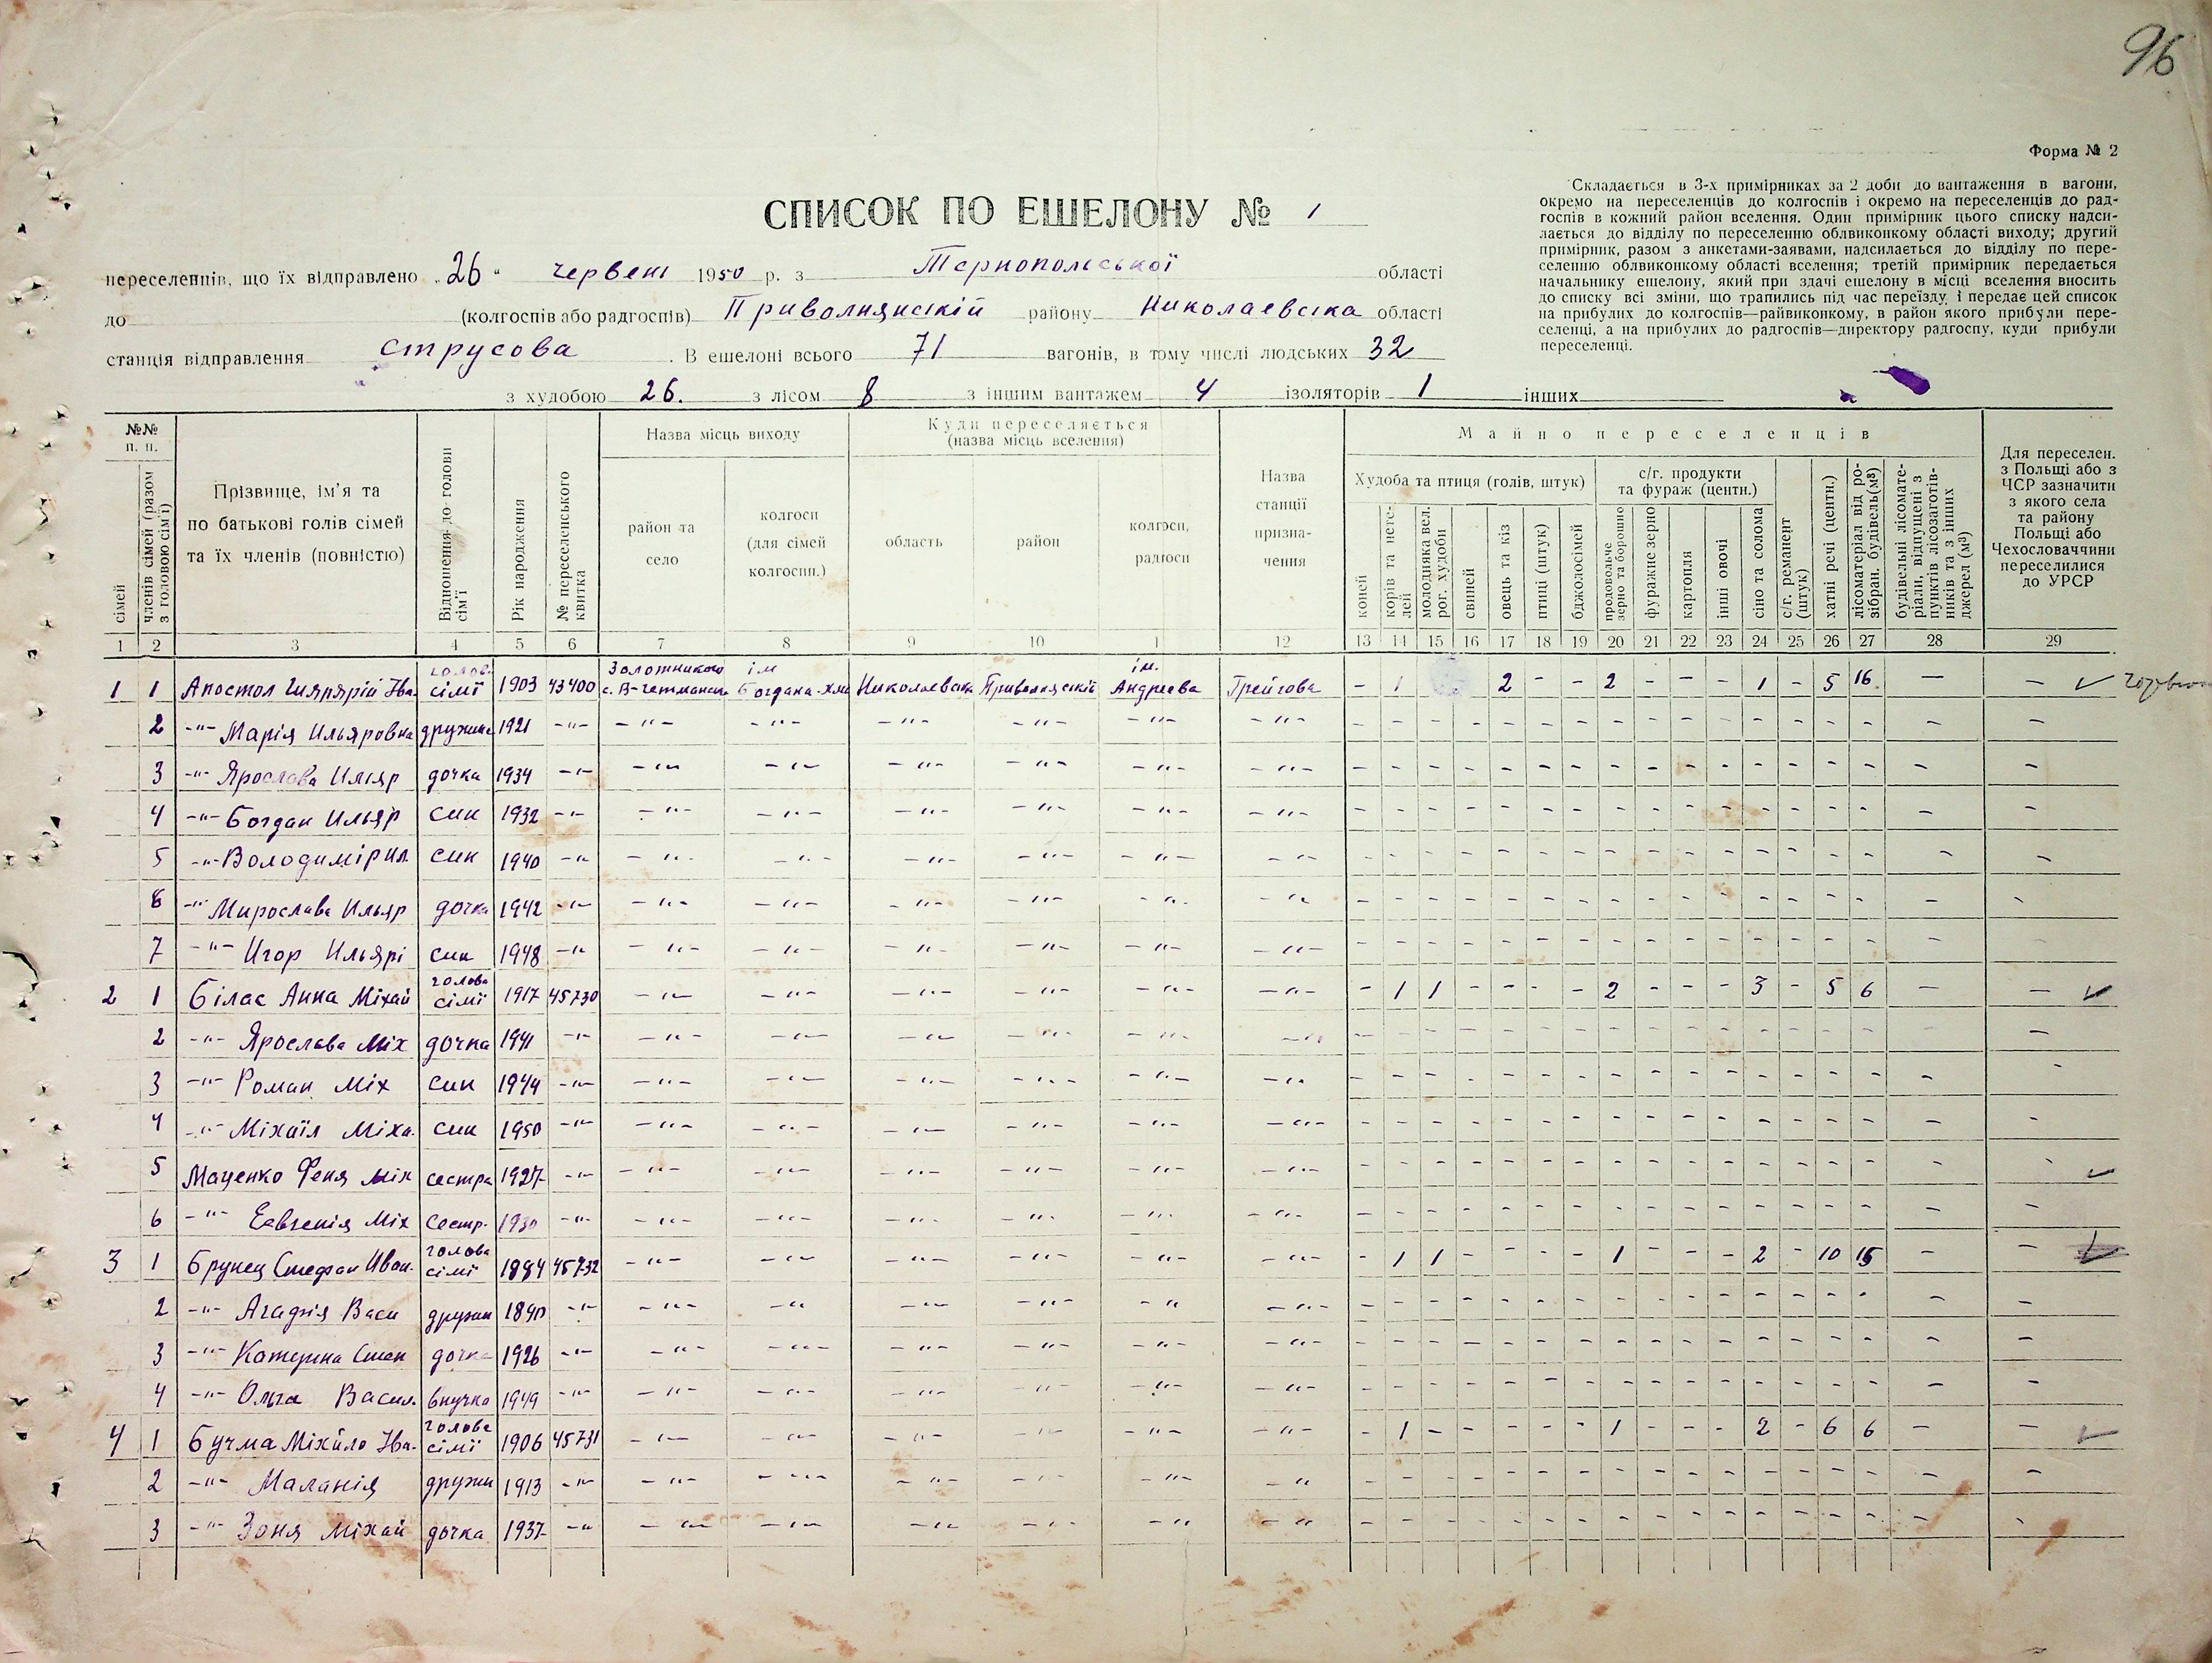 96
Форма № 2
Складається в 3-х примірниках за 2 доби до вантаження в вагони,
окремо на переселенців до колгоспів і окремо на переселенців до рад-
госпів в кожний район вселення. Один примірник цього списку надси-
лається до відділу по переселенню облвиконкому області виходу; другий
примірник, разом з анкетами-заявами, надсилається до відділу по пере-
селенню облвиконкому області вселення; третій примірник передається
начальнику ешелону, який при здачі ешелону в місці вселення вносить
до списку всі зміни, що трапились під час переїзду, і передає цей список
на прибулих до колгоспів—райвиконкому, в район якого прибули пере-
селенці, а на прибулих до радгоспів—директору радгоспу, куди прибули
переселенці.
СПИСОК ПО ЕШЕЛОНУ № 1
переселенців, що їх відправлено „26“ червень 1950 р. з Тернопольської області
до (колгоспів або радгоспів) Приволнянскій району Николаевска області
станція відправлення Струсова. В ешелоні всього 71 вагонів, в тому числі людських 32
з худобою 26. з лісом 8 з іншим вантажем 4 ізоляторів 1 інших
№№ п. п.
сімей
членів сімей (разом з головою сім'ї)
Прізвище, ім'я та по батькові голів сімей та їх членів (повністю)
Відношення до голови сім'ї
Рік народження
№ переселенського квитка
Назва місць виходу
район та село
колгосп (для сімей колгоспн.)
Куди переселяється (назва місць вселення)
область
район
колгосп, радгосп
Назва станції призна-чення
Майно переселенців
Худоба та птиця (голів, штук)
коней
корів та нете-лей
молодняка вел. рог. худоби
свиней
овець та кіз
птиці (штук)
бджолосімей
с/г. продукти та фураж (центн.)
продовольче зерно та борошно
фуражне зерно
картопля
інші овочі
сіно та солома
с/г. реманент (штук)
хатні речі (центн.)
лісоматеріал від ро-зібран. будівель (м³)
будівельні лісомате-ріали, відпущені з пунктів лісозаготів-ників та з інших джерел (м³)
Для переселен. з Польщі або з ЧСР зазначити з якого села та району Польщі або Чехословаччини переселилися до УРСР
1 2 3 4 5 6 7 8 9 10 1 12 13 14 15 16 17 18 19 20 21 22 23 24 25 26 27 28 29
1 1 Апостол Ива. голов. сімї 1903 43400 Золотникого ім Богдана Хме Николаевска Приволнянскій ім. Андреева Грейгова - 1 2 - - 2 - - - 1 - 5 16 - - ✓
2 -"- Марія Ильяровна дружина 1921 -"- -"- -"- -"- -"- -"- -"-
3 -"- Ярослава Ильяр дочка 1934 -"- -"- -"- -"- -"- -"- -"-
4 -"- Богдан Ильяр син 1932 -"- -"- -"- -"- -"- -"- -"-
5 -"- Володимір Ил син 1940 -"- -"- -"- -"- -"- -"- -"-
6 -"- Мирослава Ильяр дочка 1942 -"- -"- -"- -"- -"- -"- -"-
7 -"- Игор Ильярі син 1948 -"- -"- -"- -"- -"- -"- -"-
2 1 Білас Анна Міхай голова сімї 1917 45730 -"- -"- -"- -"- -"- -"- - 1 1 - - - - 2 - - - 3 - 5 6 - - ✓
2 -"- Ярослава Міх дочка 1941 -"- -"- -"- -"- -"- -"- -"-
3 -"- Роман Міх син 1944 -"- -"- -"- -"- -"- -"- -"-
4 -"- Міхаіл Міха. син 1950 -"- -"- -"- -"- -"- -"- -"-
5 Маценко Феня Міх сестра 1927 -"- -"- -"- -"- -"- -"- -"- ✓
6 -"- Евгенія Міх сестр. 1930 -"- -"- -"- -"- -"- -"- -"-
3 1 Брунец Стефан Иван. голова сімї 1884 45732 -"- -"- -"- -"- -"- -"- - 1 1 - - - - 1 - - - 2 - 10 15 - - ✓
2 -"- Агафія Васи дружин 1890 -"- -"- -"- -"- -"- -"- -"-
3 -"- Катерина Степ дочка 1926 -"- -"- -"- -"- -"- -"- -"-
4 -"- Ольга Васил. внучка 1949 -"- -"- -"- -"- -"- -"- -"-
4 1 Бучма Міхайло Ива. голова сімї 1906 45731 -"- -"- -"- -"- -"- -"- - 1 - - - - - 1 - - - 2 - 6 6 - - ✓
2 -"- Маланія дружин 1913 -"- -"- -"- -"- -"- -"- -"-
3 -"- Зоня Міхай дочка 1937 -"- -"- -"- -"- -"- -"- -"-